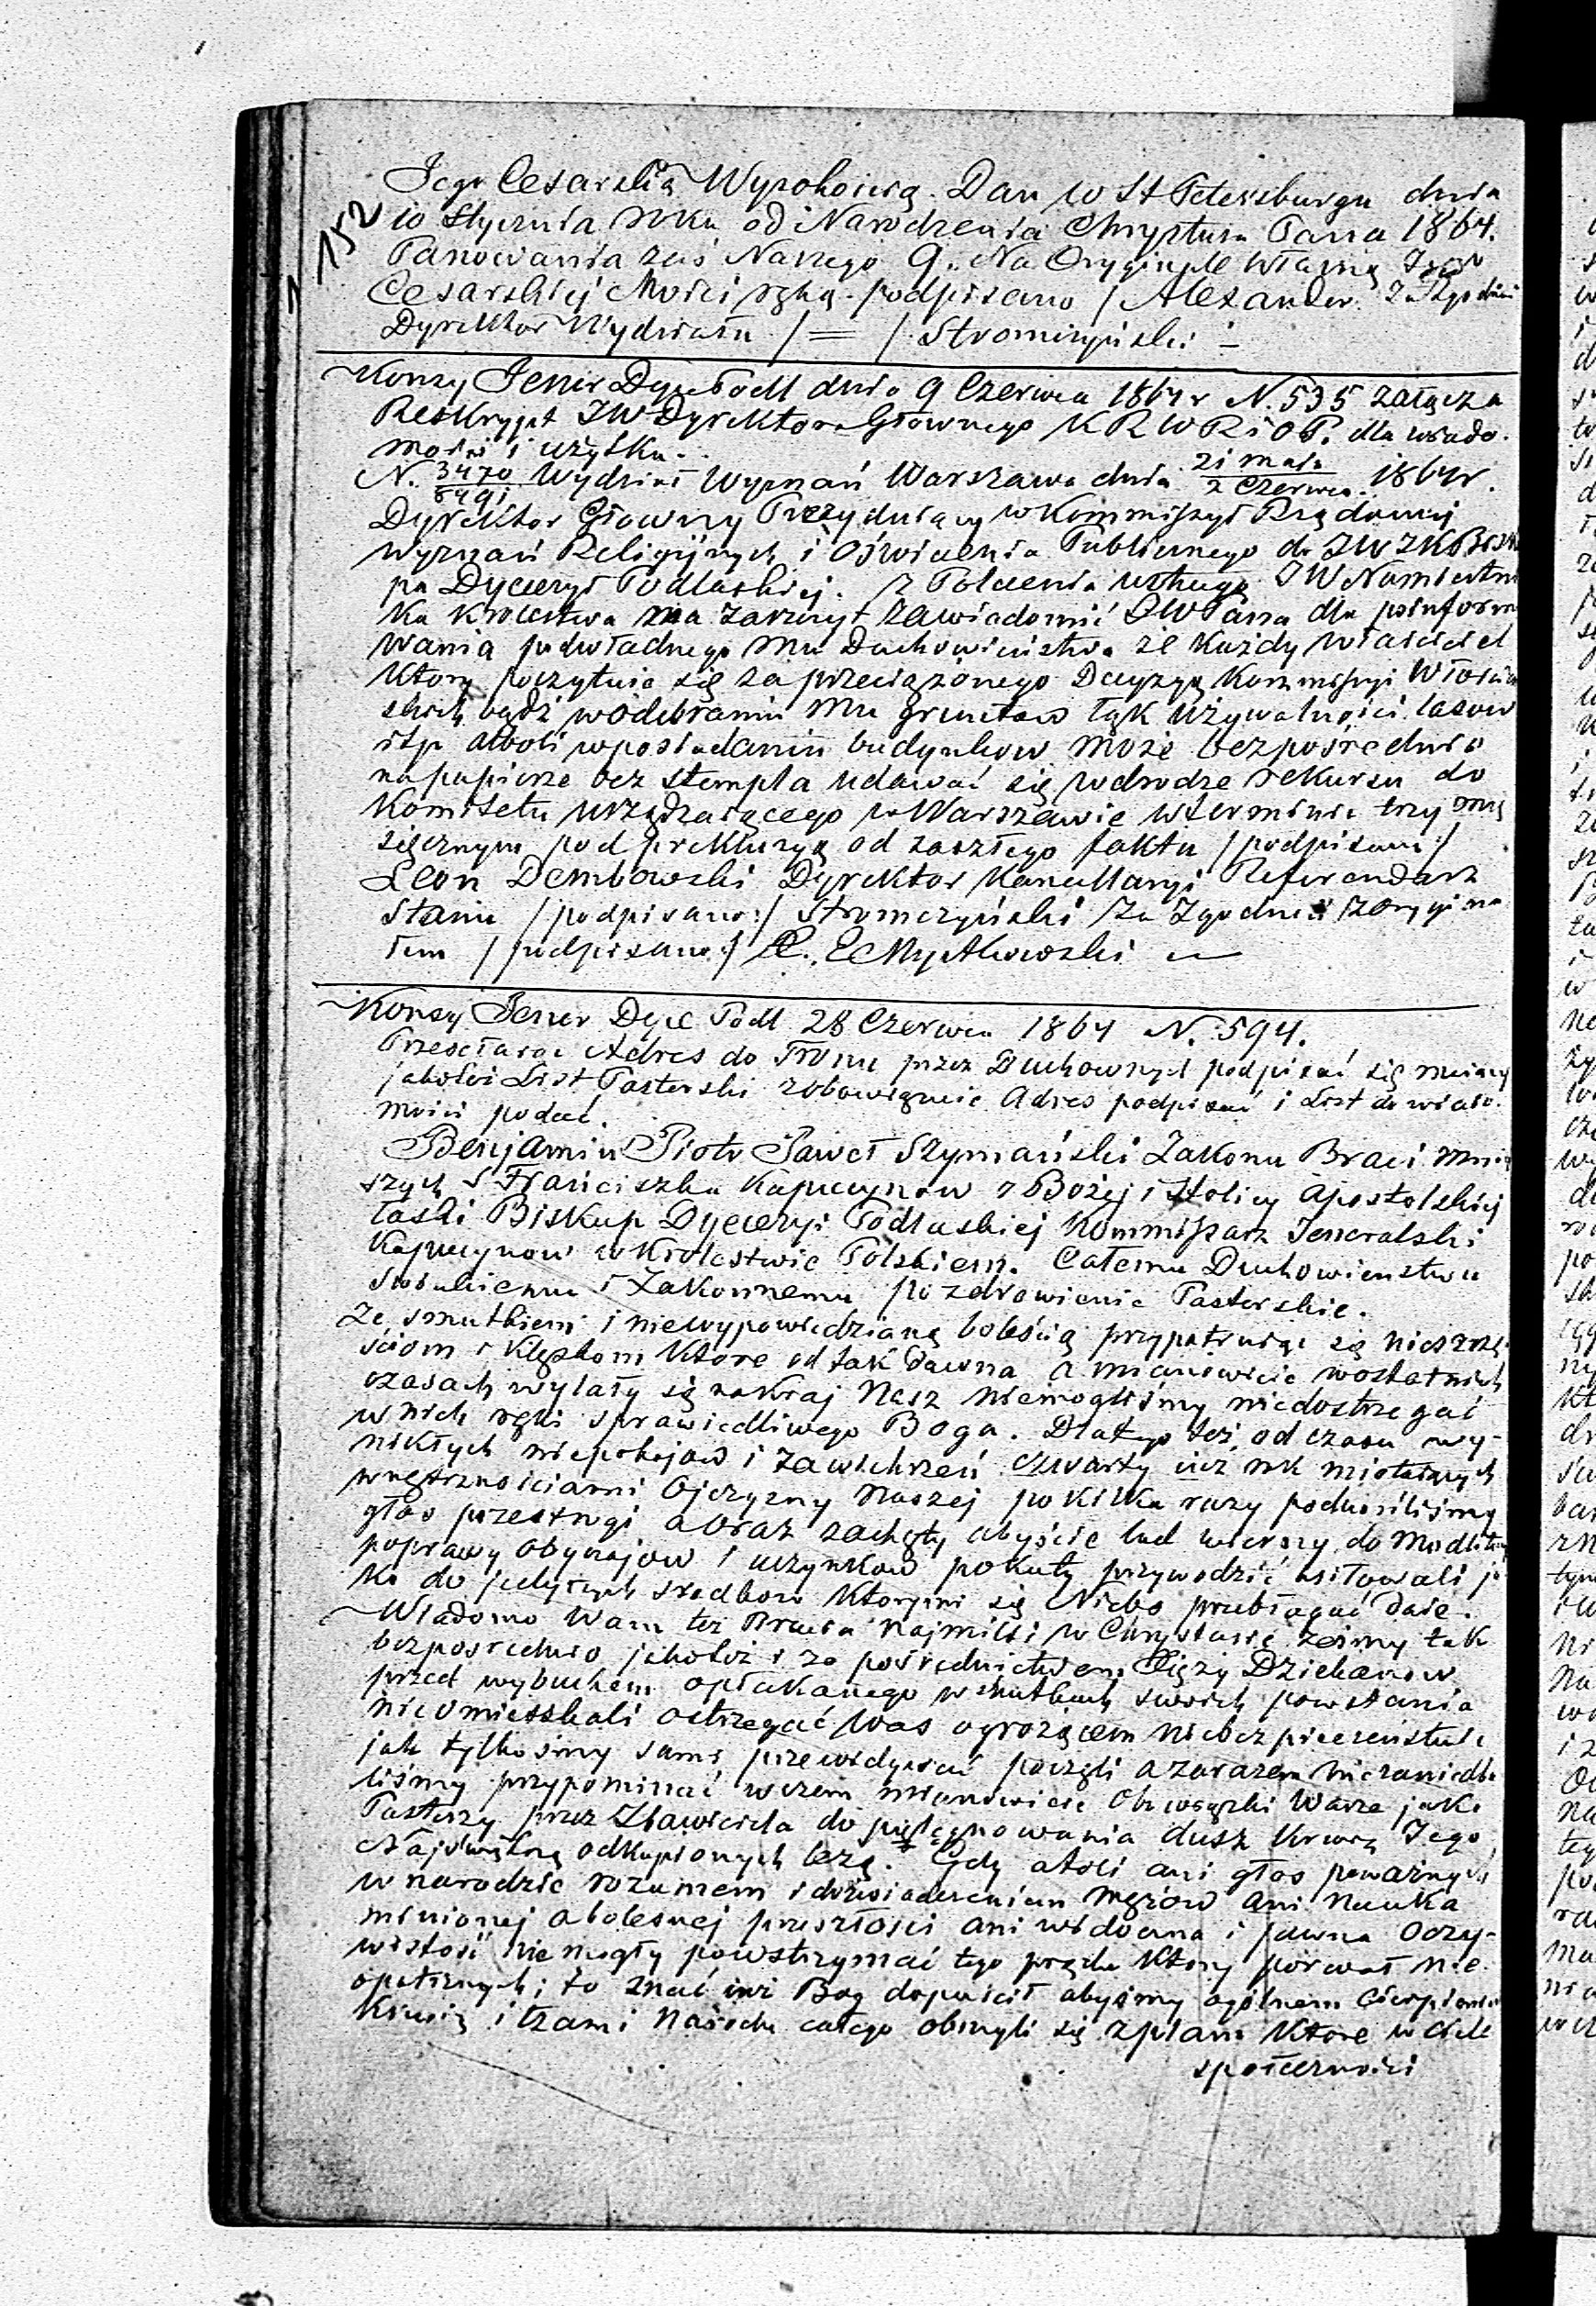 152
Jego Cesarską Wysokością. Dan w St Petersburgu dnia
10 Stycznia roku od Narodzenia Chrystusa Pana 1864.
Panowania zaś Naszego 9. Na Oryginale własną Jego
Cesarskiej Mości ręką podpisano / Alexander. Za Zgodność
Dyrektor Wydziału /=/ Stromczyński –
Konsy Jener Dyec Podl dnia 9 Czerwca 1864 r N. 535 załącza
Reskrypt JW Dyrektora Głównego K R W R i O P. dla wiado.
mości i użytku.
N. 3470/8491 Wydział Wyznań Warszawa dnia 21 maja/2 Czerwca 1864 r.
Dyrektor Głowny Prezydujący w Kommissyi Rządowej
Wyznań Religijnych i Oświecenia Publicznego do JW JK Bisku
pa Dyecezyi Podlaskiej. Z Polecenia JW Namiestni
ka Krolestwa ma zaszczyt zawiadomić JW Pana dla poinformo
wania podwładnego Mu Duchowieństwa że każdy właściciel
ktory poczytuie się za przeciążonego Decyzyą Kommissyi Włościań
skich bądź w odebraniu Mu gruntow łąk używalności lasow
itp alboli w posiadaniu budynkow może bezpośrednio
na papierze bez stempla udawać się w drodze rekursu do
Komitetu urządzaiącego w Warszawie w terminie trzy mie
sięcznym pod prekluzyą od zaszłego faktu / podpisano /
Leon Dembowski Dyrektor Kancellaryi Referendarz
Stanu / podpisano:/ Stromczyński Za Zgodność z Orygina
łem / podpisano:/ Mystkowski
Konsy Jener Dyec Podl 28 Czerwca 1864 N. 594.
Przesełaiąc Adres do Tronu przez Duchownych podpisać się maiący
jakoteż List Pasterski zobowiązuie Adres podpisać i List do wiado.
mości podać.
Benjamin Piotr Paweł Szymański Zakonu Braci Mniey
szych S Franciszka Kapucynow z Bożej i Stolicy Apostolskiej
łaski Biskup Dyecezyi Podlaskiej Kommissarz Jeneralski
Kapucynow w Krolestwie Polskiem. Całemu Duchowienstwu
Swieckiemu i Zakonnemu pozdrowienie Pasterskie.
Ze smutkiem i niewypowiedzianą boleścią przypatruiąc się nieszczę
ściom i klęskom ktore od tak dawna a mianowicie w ostatnich
czasach wylały się na kraj Nasz niemogliśmy niedostrzegać
w nich ręki sprawiedliwego Boga. Dlatego też od czasu wy-
nikłych niepokojow i zawichrzeń czwarty iuż rok miotaiących
wnętrznościami Ojczyzny naszej po kilka razy podnosiliśmy
głos przestrogi a oraz zachęty abyście lud wierny do Modlitwy
poprawy obyczajow i uczynkow pokuty przywodzić usiłowali ja
ko do jedynych srodkow ktorymi się Niebo przebłagać daie.
Wiadomo Wam też Bracia Najmilsi w Chrystusie żeśmy tak
bezposrednio jakoteż i za pośrednictwem Xięży Dziekanow
przed wybuchem opłakanego w skutkach swoich powstania
nieomieszkali ostrzegać Was o grożącem niebezpieczeństwie
jak tylkośmy sami przewidywać poczęli a zarazem niezaniedba
liśmy przypominać w czem mianowicie Obowiązki Wasze jako
Pasterzy przez Zbawiciela do pielęgnowania dusz krwią Jego
Najświętszą odkupionych leżą. Gdy atoli ani głos poważnych
w narodzie rozumem i doświadczeniem mężow ani nauka
minionej a bolesnej przeszłości ani widoczna i jawna oczy-
wistość nie mogły powstrzymać tego prądu ktory porwał nie
opatrznych; to znać iuż Bog dopuścił abyśmy ogólnem cierpieniem
krwią i łzami Narodu całego obmyli się z plam ktore w ciele
społeczności